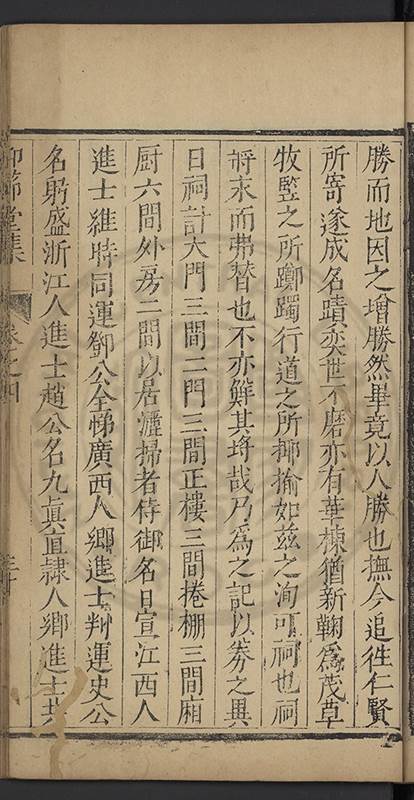 勝而地因之增勝然畢竟以人勝也撫今追徃仁賢
所寄遂成名蹟奕世不磨亦有華棟猶新鞠爲茂草
牧豎之所躑躅行道之所揶揄如茲之洵可祠也祠
將永而弗替也不亦鮮其埒哉乃爲之記以劵之異
日祠計大門三間二門三間正樓三間捲棚三間廂
厨六間外房二間以居灑掃者侍御名日宣江西人
進士維時同運鄧公全悌廣西人鄉進士判運史公
名躬盛浙江人進士趙公名九眞直隷人鄉進士共
仰節堂集 卷之四